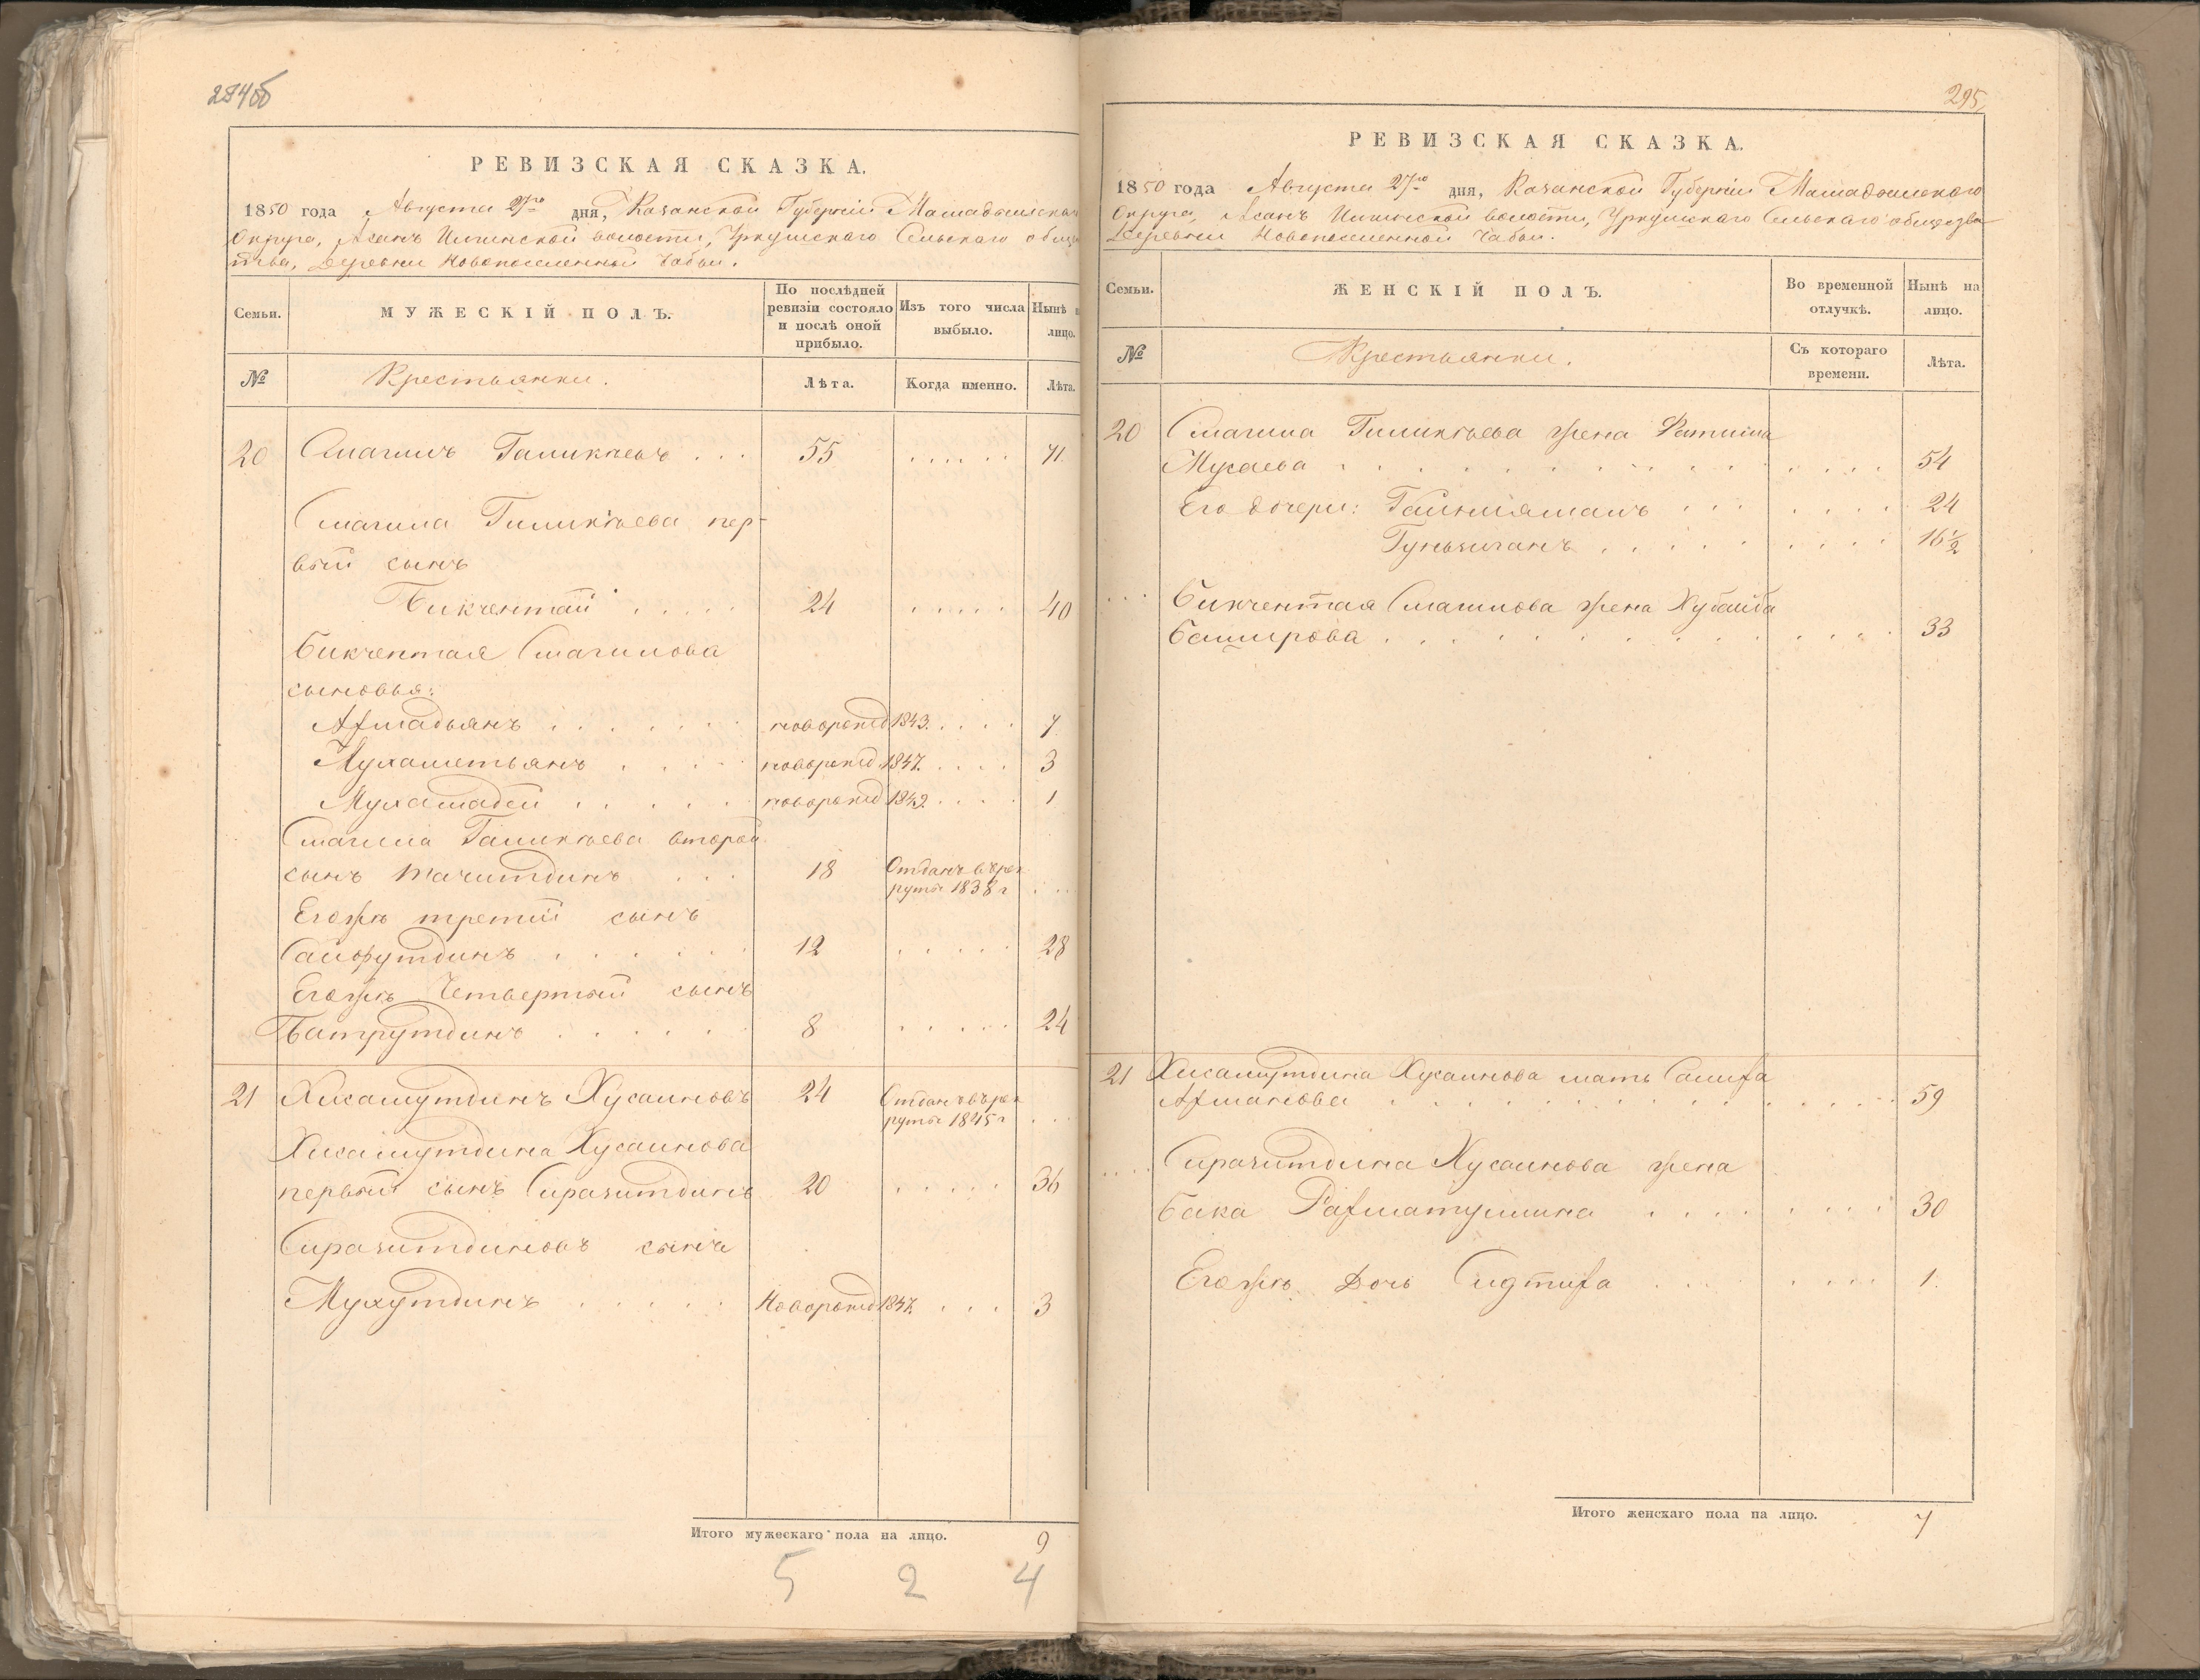 284об
РЕВИЗСКАЯ СКАЗКА.
1850 года Августа 27го дня, Казанской Губерніи Мамадышскаго
Округа, Асанъ Илгинской волости, Уркушскаго Сельскаго общес
тва, Деревни Новопоселенной Чабьи.
Семьи. МУЖЕСКІЙ ПОЛЪ. По послѣдней ревизіи состояло и послѣ оной прибыло. Изъ того числа выбыло. Нынѣ лицо.
№ Крестьянки. Лѣта. Когда именно. Лѣта.
20 Смагилъ Галикѣевъ . . . 55 . . . . . . 71.
Смагила Галикѣева пер-
вый сынъ
Бикчентай . . . . . 24 . . . . . 40
Бикчентая Смагилова
сыновья:
Ахмадьянъ . . . . . . новорожд 1843. . . . . 7
Мухаметьянъ . . . . . новорожд. 1847. . . . . 3
Мухамадей . . . . . новорожд 1849. . . . . 1
Смагила Галикѣева второй
сынъ Тачитдинъ . . . 18 Отданъ въ рек
руты 1838 г . . .
Егожъ третій сынъ
Сайфутдинъ . . . . . . 12 . . . . . 28
Егожъ Четвертый сынъ
Батрутдинъ . . . . . 8 . . . . . 24
21 Хисамутдинъ Хусаиновъ 24 Отданъ въ рек
руты 1845 г . . .
Хисамутдина Хусаинова
первый сынъ Сиразитдинъ 20 . . . . . 36
Сиразитдиновъ сынъ
Мухутдинъ . . . . . Новорожд 1847. . . . 3
Итого мужескаго пола на лицо. 9
5 2 4
295
РЕВИЗСКАЯ СКАЗКА.
1850 года Августа 27го дня, Казанской Губерніи Мамадышскаго
Округа, Асанъ Илгинской волости, Уркушскаго Сельскаго общества
Деревни Новопоселенной Чабьи.
Семьи. ЖЕНСКІЙ ПОЛЪ. Во временной отлучкѣ. Нынѣ на лицо.
№ Крестьянки. Съ котораго времени. Лѣта.
20 Смагила Галикѣева жена Фатима
Мусаева . . . . . . . . . . . . . . 54
Его дочери: Гайніямалъ . . . . . . . 24
Гульчиганъ . . . . . . . . . 16½
. . . Бикчентая Смагилова жена Хубайба
Баширова . . . . . . . . . . . . . 33
21 Хисамутдина Хусаинова мать Салифа
Ахманова . . . . . . . . . . . . . 59
. . . . Сиразитдина Хусаинова жена
Бака Рахматуллина . . . . . . . . 30
Егожъ Дочь . . . . . . . 1.
Итого женскаго пола на лицо. 7